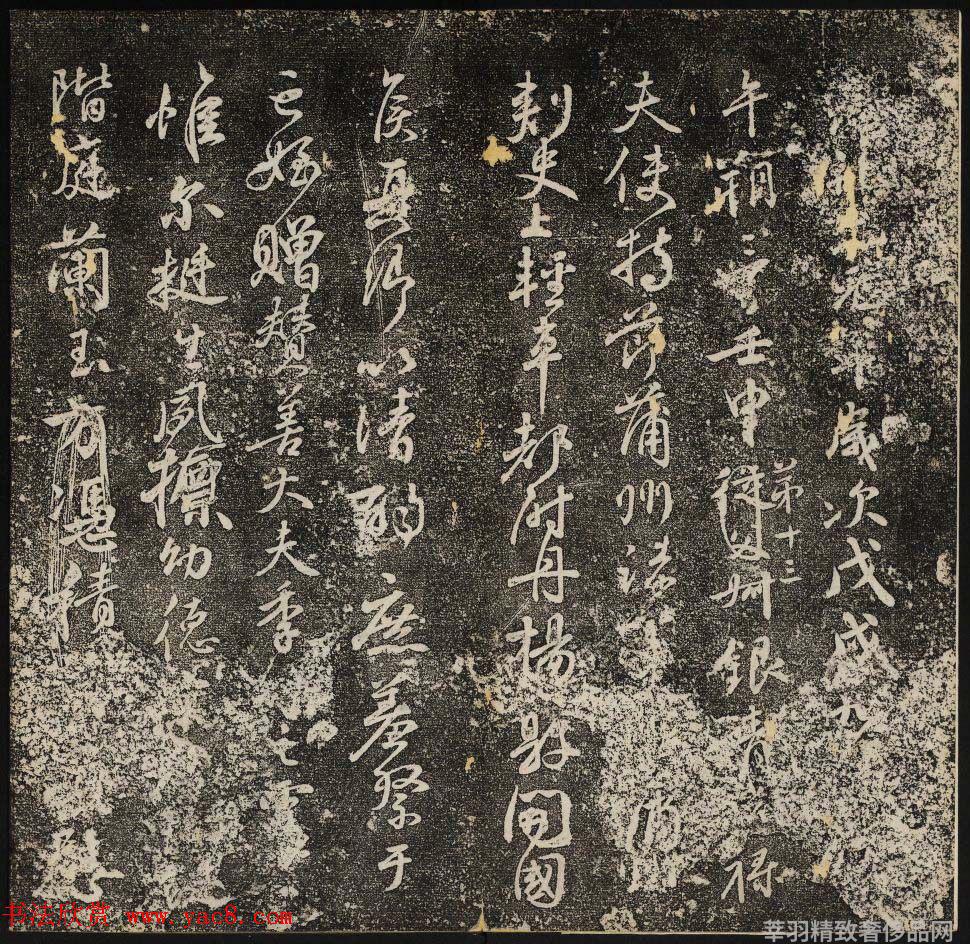 元年歲次戊戌九
午朔三日壬申從父叔銀青祿
第十三
夫使持節蒲州諸軍蒲州
刺史上輕車都尉丹楊縣開國
侯真卿以清酌庶羞祭于
亡姪贈贊善大夫季之靈
惟爾挺生夙標幼德
階庭蘭玉方憑積
书法欣赏 www.yac8.com
莘羽精致奢侈品网